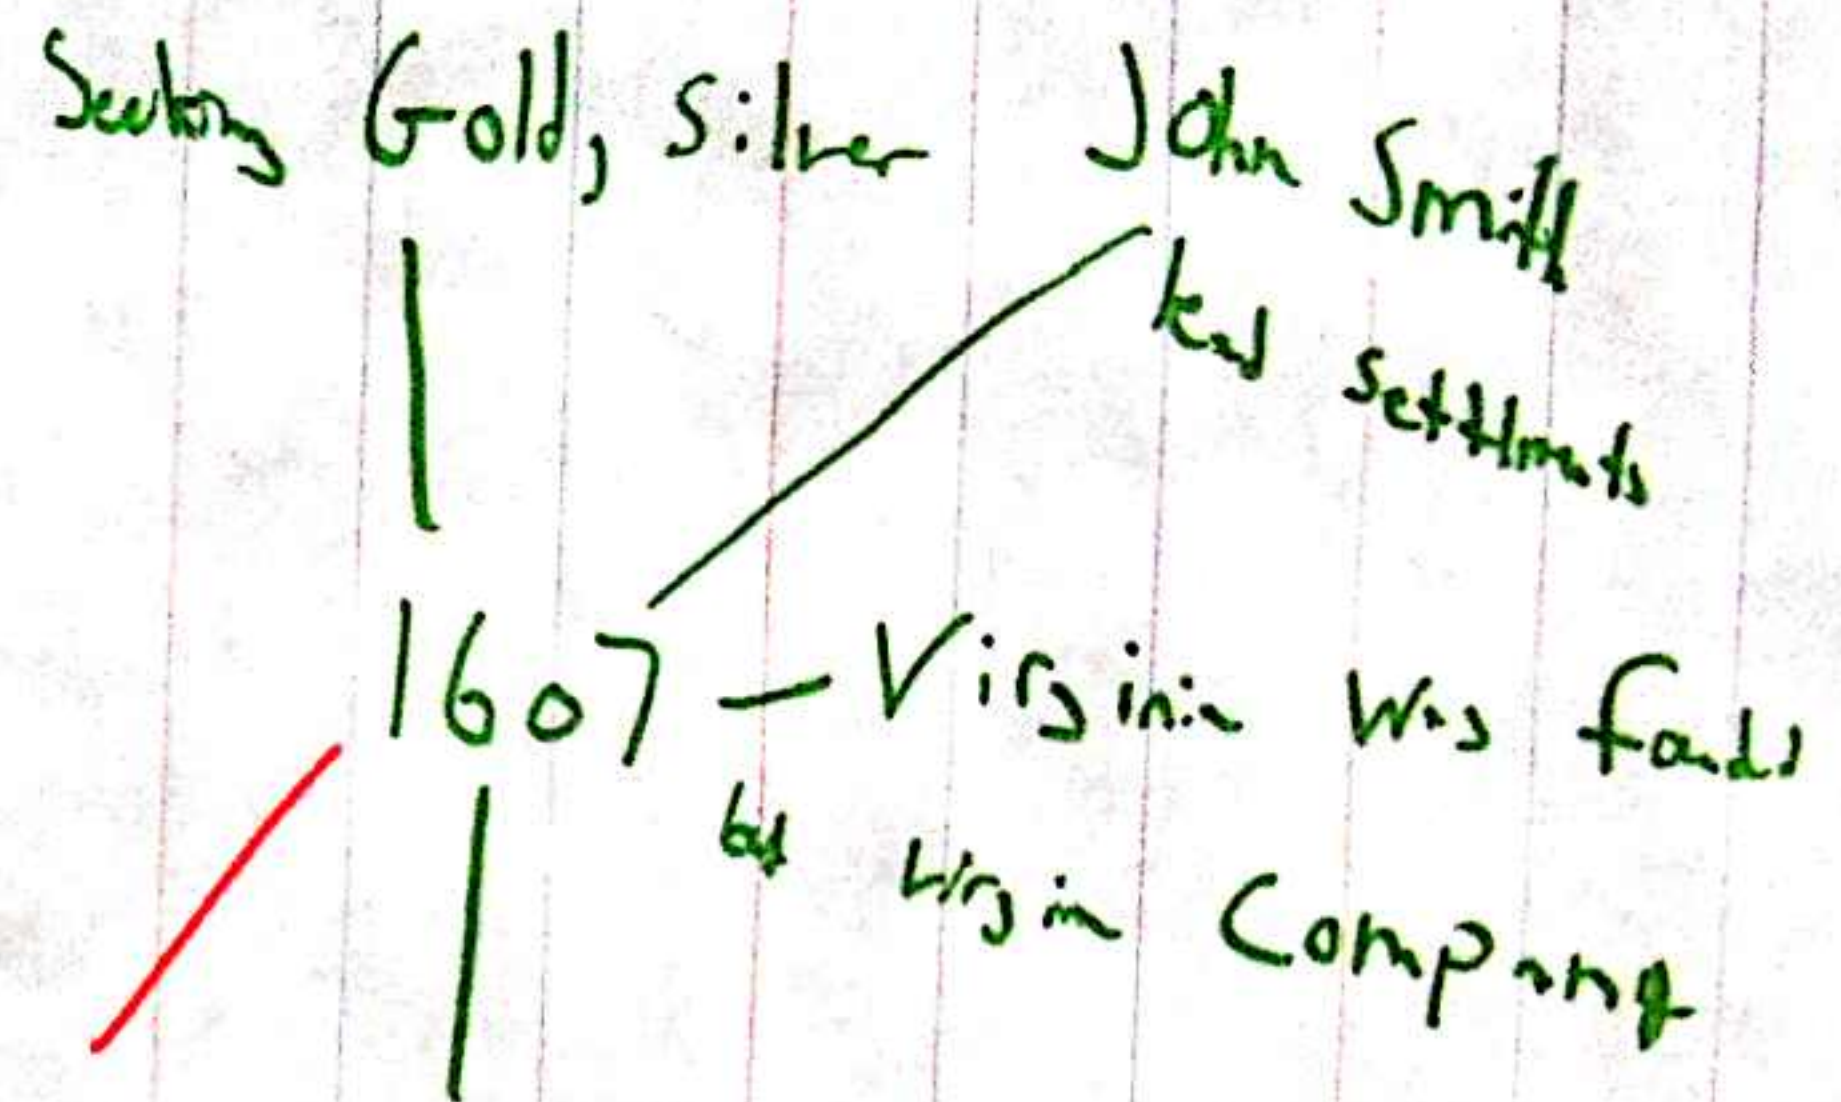 Seeking Gold, Silver
John Smith
lead settlments
1607 — Virginia was
by Virgin Company